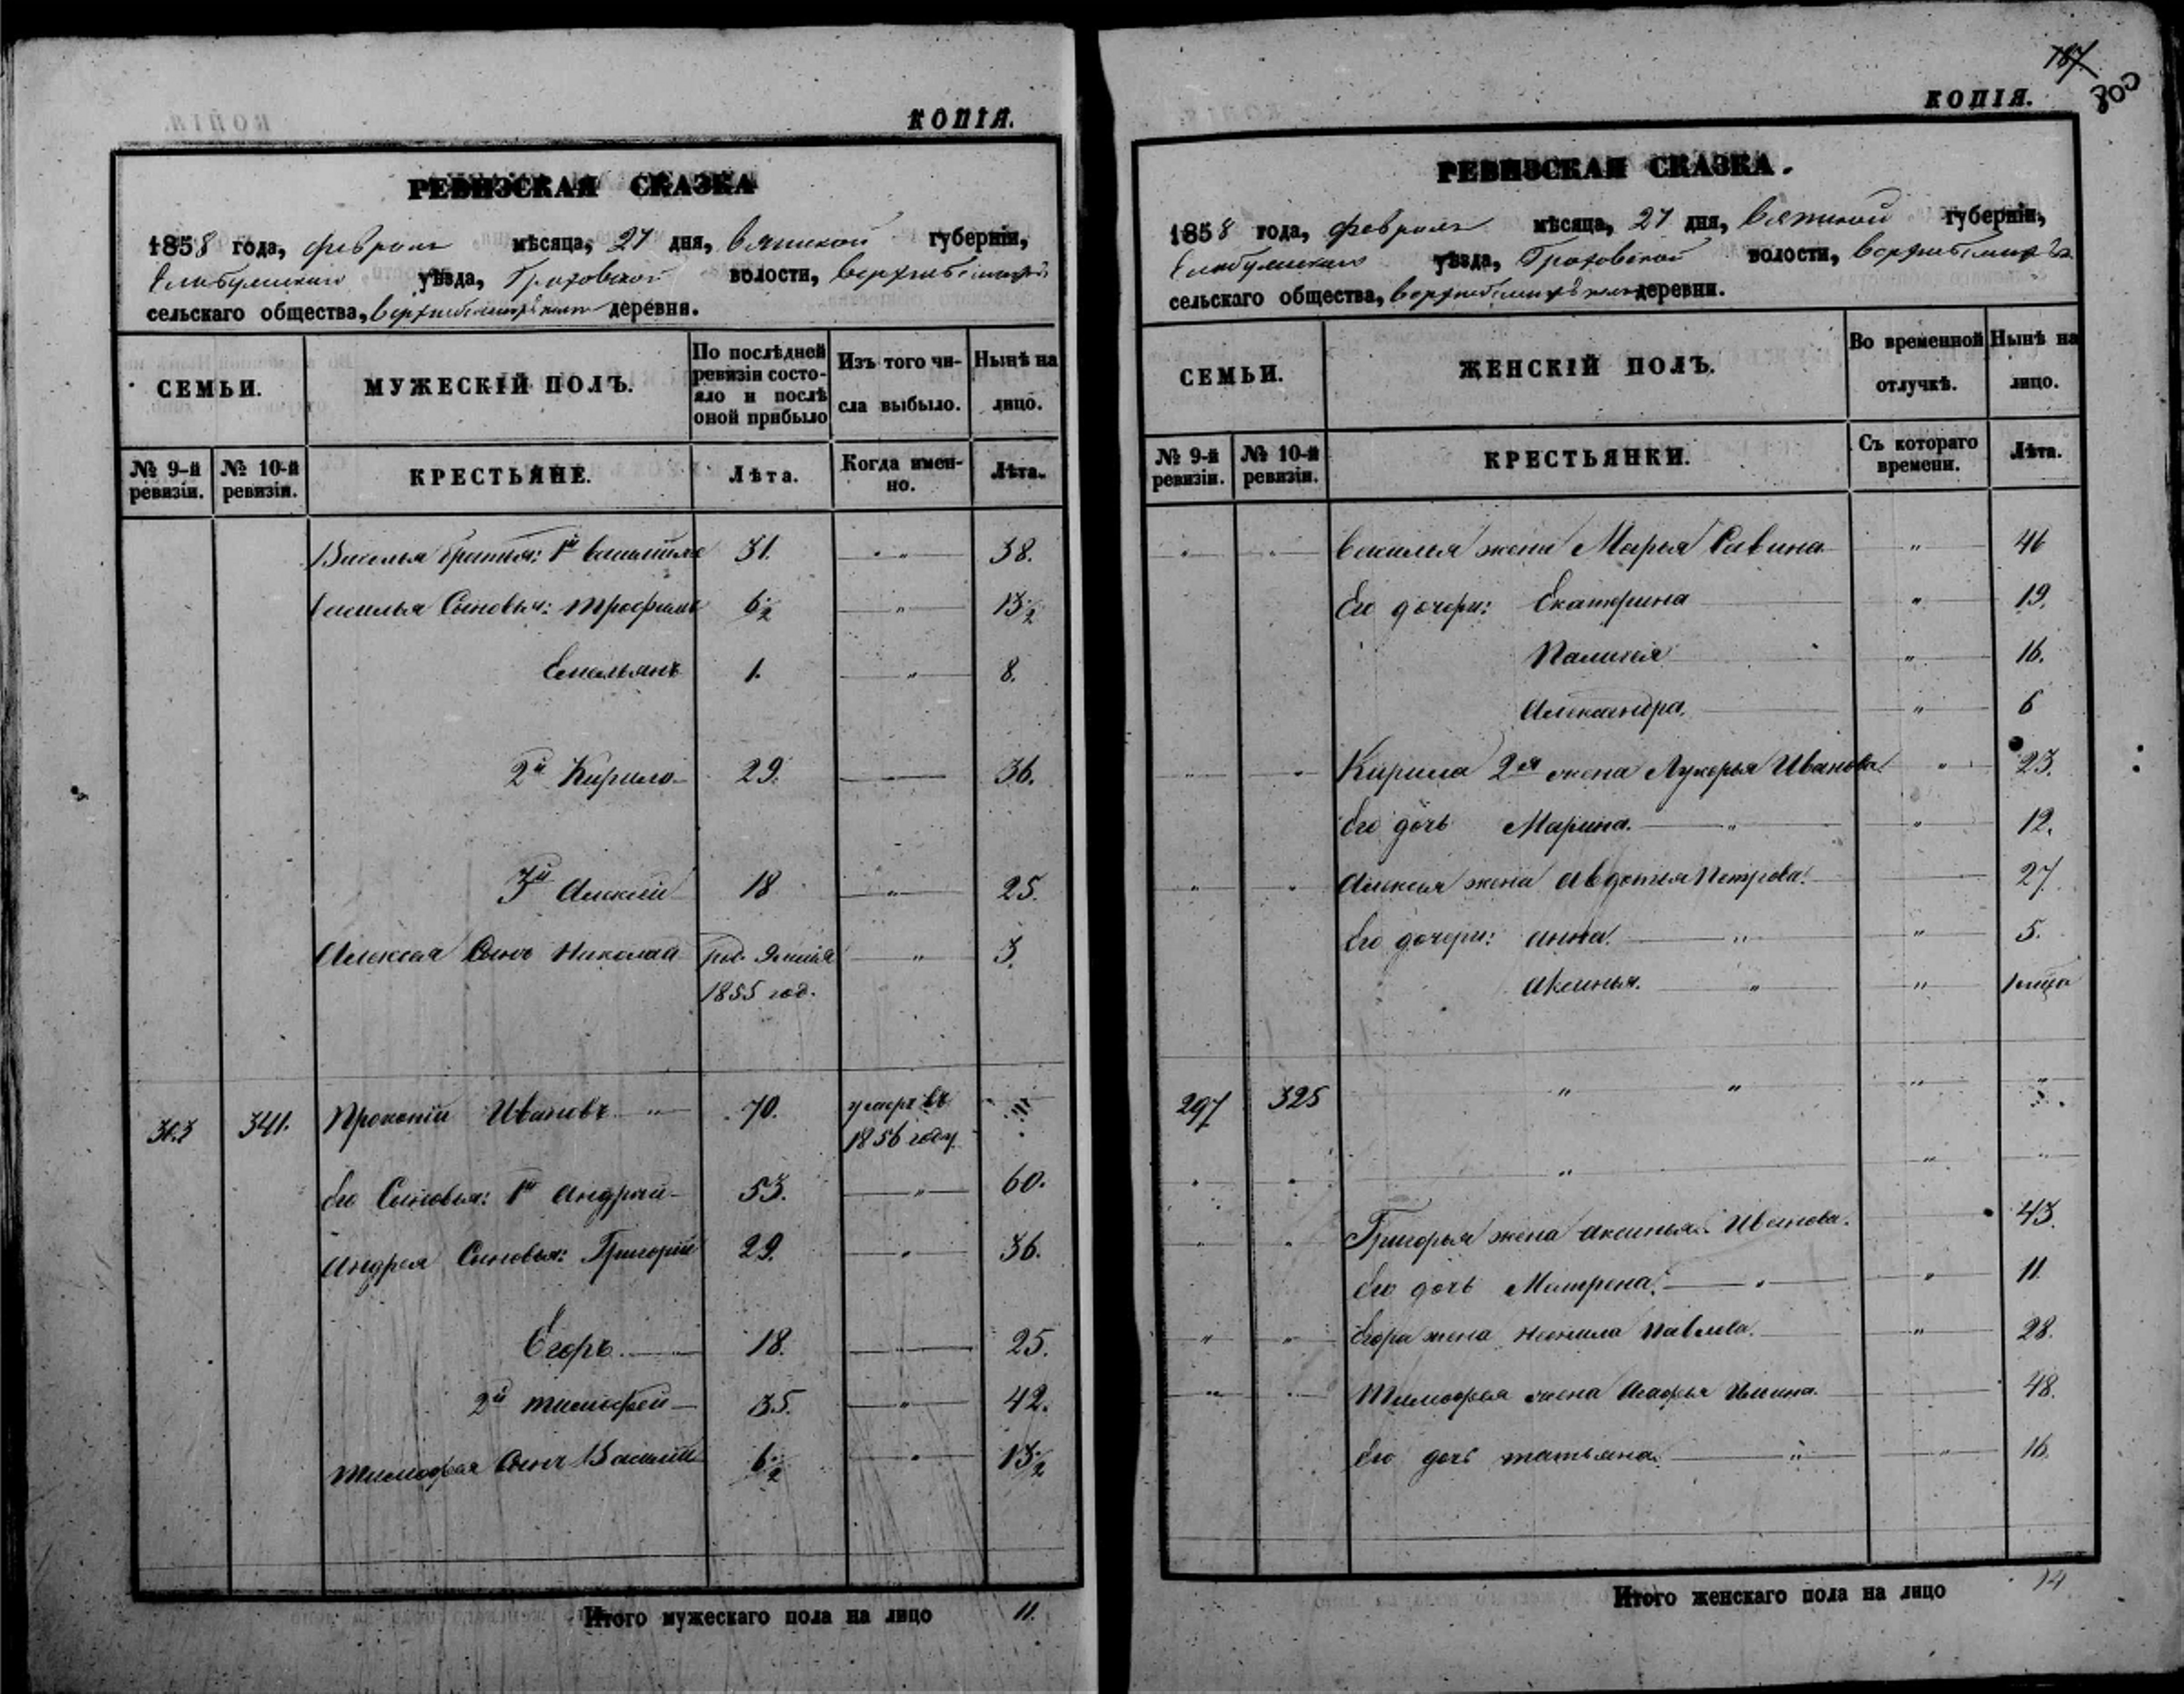 КОПІЯ.
РЕВИЗСКАЯ СКАЗКА
1858 года, февраля мѣсяца, 27 дня, Вятской губерніи,
Елабужскаго уѣзда, Граховской волости,
сельскаго общества, деревни.
СЕМЬИ.
МУЖЕСКІЙ ПОЛЪ.
По послѣдней ревизіи состо-
яло и послѣ оной прибыло
Изъ того чи-
сла выбыло.
Нынѣ на
лицо.
№ 9-й ревизіи.
№ 10-й ревизіи.
КРЕСТЬЯНЕ.
Лѣта.
Когда имен-
но.
Лѣта.
Василья братья: 1й 31. " 38.
Василья Сыновья: Трофимъ 6½ " 13½
Емельянъ 1. " 8.
2й Кирило 29. 36.
3й Алексѣй 18 " 25.
Алексѣя Сынъ Николай " 3.
1855 год.
341. Прокопій Ивановъ " 70. умеръ въ "
1856 году.
Его Сыновья: 1й Андрей 53. " 60.
Андрея Сыновья: Григорій 29. " 36.
Егоръ 18. 25.
2й Тимофей 35. " 42.
Тимофея Сынъ Василій 6½ " 13½
Итого мужескаго пола на лицо 11.
187
800
КОПІЯ.
РЕВИЗСКАЯ СКАЗКА.
1858 года, февраля мѣсяца, 27 дня, Вятской губерніи,
Елабужскаго уѣзда, Граховской волости,
сельскаго общества, деревни.
СЕМЬИ.
ЖЕНСКІЙ ПОЛЪ.
Во временной
отлучкѣ.
Нынѣ на
лицо.
№ 9-й ревизіи.
№ 10-й ревизіи.
КРЕСТЬЯНКИ.
Съ котораго
времени.
Лѣта.
" " Василья жена Марья Савина " 46
Его дочери: Екатерина " 19.
" 16.
Александра. " 6
" " Кирила 2я жена Лукерья Иванова " 23.
Его дочь Марина. " " 12.
" " Алексѣя жена Авдотья Петрова. 27.
Его дочери: Анна. " " 5.
Аксинья. " "
297 325 " " " "
" " " " "
" " Григорья жена Аксинья Иванова. 43.
Его дочь Матрена. " " 11.
" " Егора жена Неонила Павлова. " 28.
" " Тимофея жена Агафья Ильина. 48.
Его дочь Татьяна. " " 16.
Итого женскаго пола на лицо 14